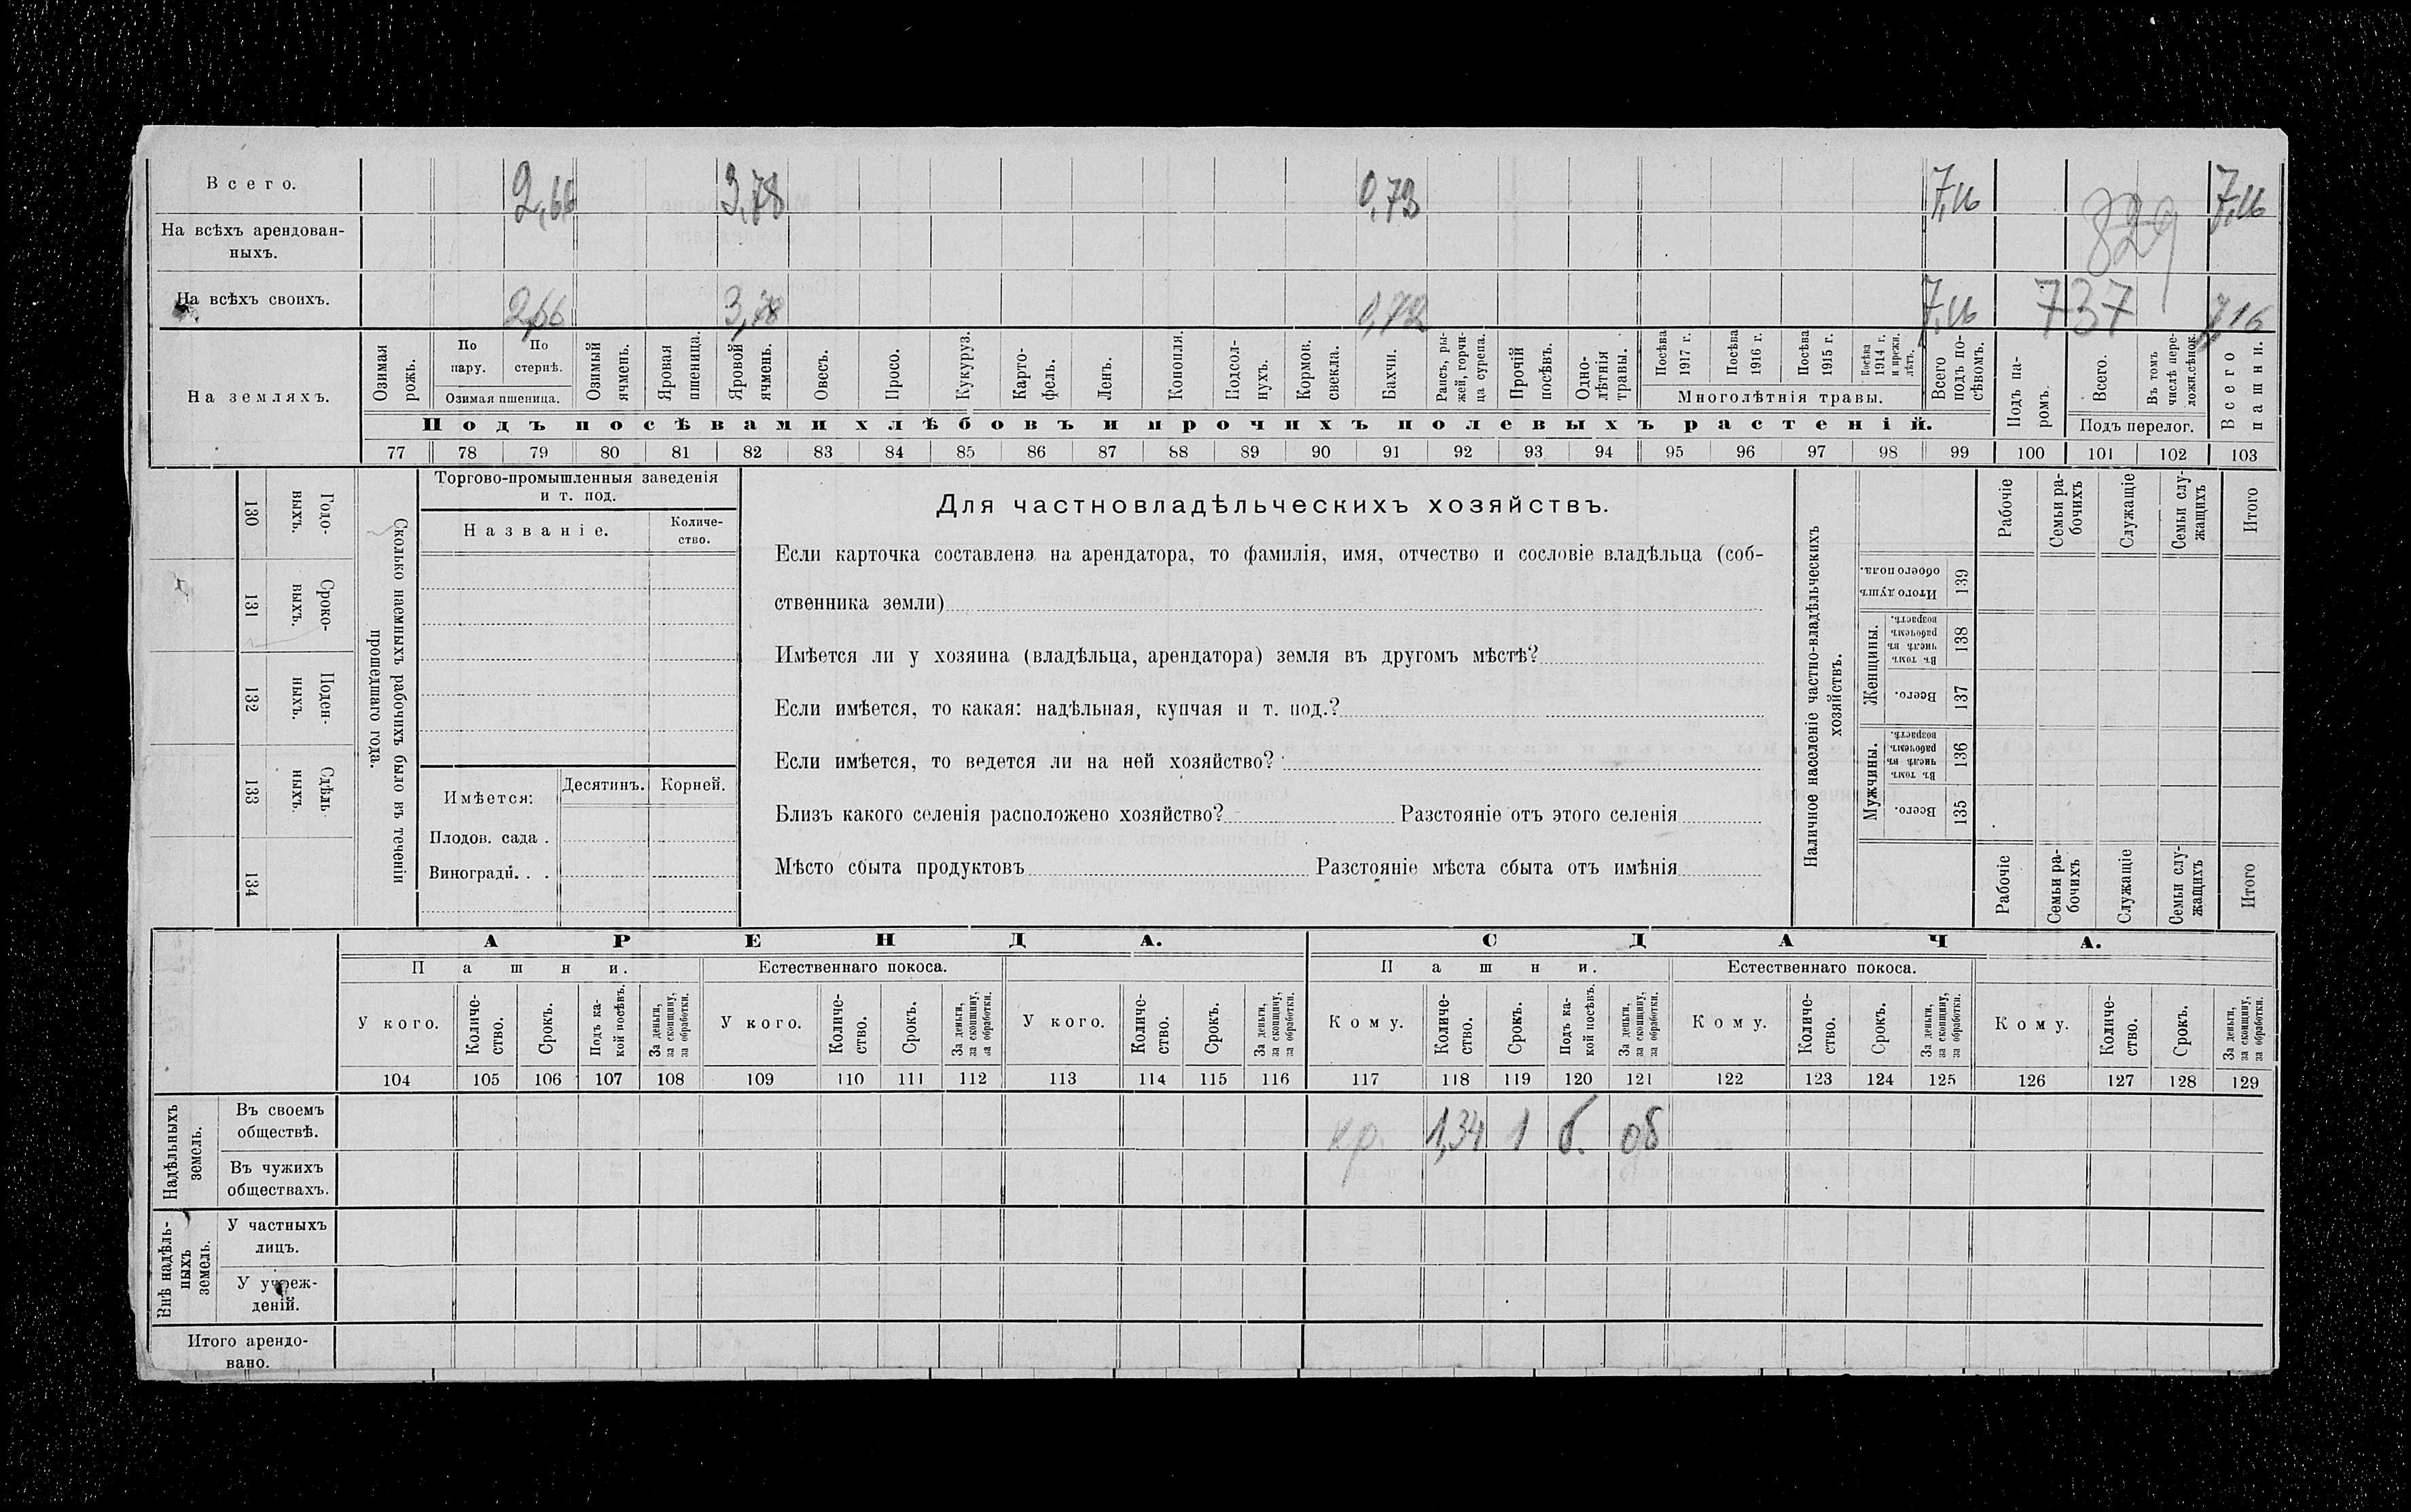 Всего. 2,66 3,78 0,72 7,16 7,16
На всѣхъ арендован-
ныхъ. 829
На всѣхъ своихъ. 2,66 3,78 0,72 7,16 737 7,16
На земляхъ.
Озимая рожь.
По пару.
По стернѣ.
Озимая пшеница.
Озимый ячмень.
Яровая пшеница.
Яровой ячмень.
Овесъ.
Просо.
Кукуруз.
Карто-
фель.
Ленъ.
Конопля.
Подсол-
нухъ.
Кормов. свекла.
Бахчи.
Рапсъ, ры-
жей, горчи-
ца сурепа.
Прочій посѣвъ.
Одно-
лѣтнія травы.
Посѣва 1917 г.
Посѣва 1916 г.
Посѣва 1915 г.
Посѣва 1914 г. и прежн. лѣтъ.
Многолѣтнія травы.
Всего подъ по-
сѣвомъ.
Подъ па-
ромъ.
Всего.
Въ томъ числѣ пере-
ложн. сѣнок.
Подъ перелог.
Всего пашни.
Подъ посѣвами хлѣбовъ и прочихъ полевыхъ растеній.
77 78 79 80 81 82 83 84 85 86 87 88 89 90 91 92 93 94 95 96 97 98 99 100 101 102 103
130 Годо-
ныхъ.
131 Сроко-
ныхъ.
132 Поден-
ныхъ.
133 Сдѣль-
ныхъ.
134
Сколько наемныхъ рабочихъ было въ теченіи
прошедшаго года.
Торгово-промышленныя заведенія
и т. под.
Названіе.
Количе-
ство.
Имѣется:
Десятинъ. Корней.
Плодов. сада .
Виноградн. . .
Для частновладѣльческихъ хозяйствъ.
Если карточка составлена на арендатора, то фамилія, имя, отчество и сословіе владѣльца (соб-
ственника земли)
Имѣется ли у хозяина (владѣльца, арендатора) земля въ другомъ мѣстѣ?
Если имѣется, то какая: надѣльная, купчая и т. под.?
Если имѣется, то ведется ли на ней хозяйство?
Близъ какого селенія расположено хозяйство? Разстояніе отъ этого селенія
Мѣсто сбыта продуктовъ Разстояніе мѣста сбыта отъ имѣнія
Наличное населеніе частно-владѣльческихъ
хозяйствъ.
Рабочіе
Семьи ра-
бочихъ
Служащіе
Семьи слу-
жащихъ
Итого
Итого душъ обоего пола. 139
Женщины.
Въ томъ числѣ въ рабочемъ возрастѣ. 138
Всего. 137
Мужчины.
Въ томъ числѣ въ рабочемъ возрастѣ. 136
Всего. 135
Рабочіе
Семьи ра-
бочихъ
Служащіе
Семьи слу-
жащихъ
Итого
АРЕНДА. СДАЧА.
Пашни. Естественнаго покоса. Пашни. Естественнаго покоса.
У кого.
Количе-
ство.
Срокъ.
Подъ ка-
кой посѣвъ.
За деньги, за скопщину, за обработки.
У кого.
Количе-
ство.
Срокъ.
За деньги, за скопщину, за обработки.
У кого.
Количе-
ство.
Срокъ.
За деньги, за скопщину, за обработки.
Кому.
Количе-
ство.
Срокъ.
Подъ ка-
кой посѣвъ.
За деньги, за скопщину, за обработки.
Кому.
Количе-
ство.
Срокъ.
За деньги, за скопщину, за обработки.
Кому.
Количе-
ство.
Срокъ.
За деньги, за скопщину, за обработки.
104 105 106 107 108 109 110 111 112 113 114 115 116 117 118 119 120 121 122 123 124 125 126 127 128 129
Надѣльныхъ
земель.
Въ своемъ
обществѣ. кр. 1,34 1 б. об
Въ чужихъ
обществахъ.
Внѣ надѣль-
ныхъ
земель.
У частныхъ
лицъ.
У учреж-
деній.
Итого арендо-
вано.